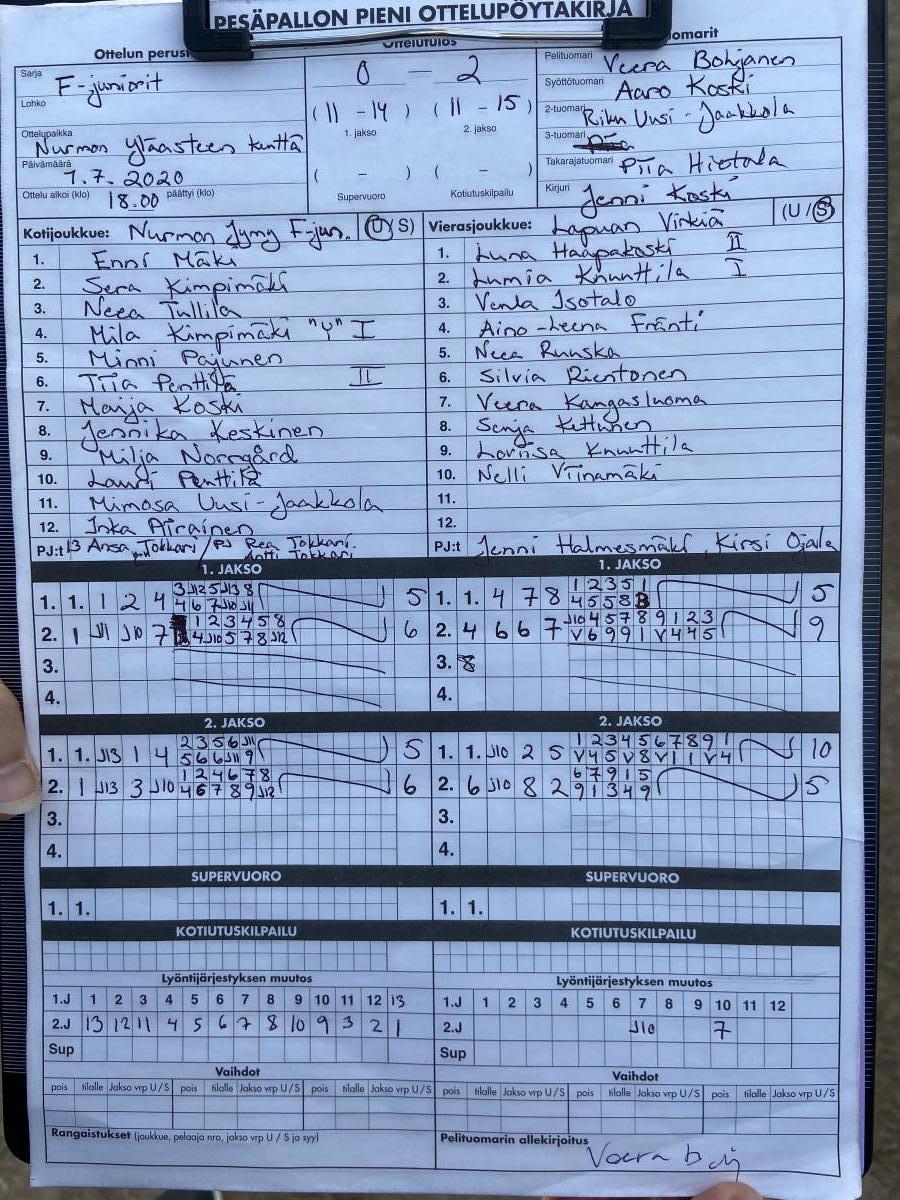 PESÄPALLON PIENI OTTELUPÖYTÄKIRJA
Ottelun perust
Ottelutulos
omarit
Sarja F-juniorit
Lohko
Ottelupaikka Nurmon yläasteen kenttä
Päivämäärä 7.7.2020
Ottelu alkoi (klo) 18.00 päättyi (klo)
0 - 2
(11 - 14) (11 - 15)
1. jakso 2. jakso
( - ) ( - )
Supervuoro Kotiutuskilpailu
Pelituomari Veera Bohjanen
Syöttötuomari Aaro Koski
2-tuomari Riku Uusi-Jaakkola
3-tuomari
Takarajatuomari Piia Hietala
Kirjuri Jenni Koski
Kotijoukkue: Nurmon Jymy F-jun. (U/S)
1. Enni Mäki
2. Sera Kimpimäki
3. Neea Tullila
4. Mila Kimpimäki "Y" I
5. Minni Pajunen
6. Tiia Penttilä II
7. Maija Koski
8. Jennika Keskinen
9. Milja Norrgård
10. Lauri Penttilä
11. Mimosa Uusi-Jaakkola
12. Inka Airainen
PJ:t 13 Ansa Jokkari / PJ Rea Jokkari.
Antti Jokkari
Vierasjoukkue: Lapuan Virkiä (U/S)
1. Luna Haapakoski II
2. Lumia Knuuttila I
3. Venla Isotalo
4. Aino-Leena Fränti
5. Neea Ruuska
6. Silvia Rientonen
7. Veera Kangasluoma
8. Senja Kettunen
9. Loviisa Knuuttila
10. Nelli Viinamäki
11.
12.
PJ:t Jenni Halmesmäki, Kirsi Ojala
1. JAKSO
3 J12 5 J13 8
1. 1. 1 2 4 4 6 7 J10 J11 5
1 2 3 4 5 8
2. 1 J11 J10 7 4 J10 5 7 8 J12 6
3.
4.
1. JAKSO
1 2 3 5 1
1. 1. 4 7 8 4 5 5 8 5
J10 4 5 7 8 9 1 2 3
2. 4 6 6 7 V 6 9 9 1 V 4 4 5 9
3. 8
4.
2. JAKSO
2 3 5 6 J11
1. 1. J13 1 4 5 6 6 J11 9 5
1 2 4 6 7 8
2. 1 J13 3 J10 4 6 7 8 9 J12 6
3.
4.
2. JAKSO
1 2 3 4 5 6 7 8 9 1
1. 1. J10 2 5 V 4 5 V 8 V 1 1 V 4 10
6 7 9 1 5
2. 6 J10 8 2 9 1 3 4 9 5
3.
4.
SUPERVUORO
1. 1.
SUPERVUORO
1. 1.
KOTIUTUSKILPAILU
KOTIUTUSKILPAILU
Lyöntijärjestyksen muutos
1.J 1 2 3 4 5 6 7 8 9 10 11 12 13
2.J 13 12 11 4 5 6 7 8 10 9 3 2 1
Sup
Lyöntijärjestyksen muutos
1.J 1 2 3 4 5 6 7 8 9 10 11 12
2.J J10 7
Sup
Vaihdot
pois tilalle Jakso vrp U/S pois tilalle Jakso vrp U/S pois tilalle Jakso vrp U/S
Vaihdot
pois tilalle Jakso vrp U/S pois tilalle Jakso vrp U/S pois tilalle Jakso vrp U/S
Rangaistukset (joukkue, pelaaja nro, jakso vrp U/S ja syy)
Pelituomarin allekirjoitus